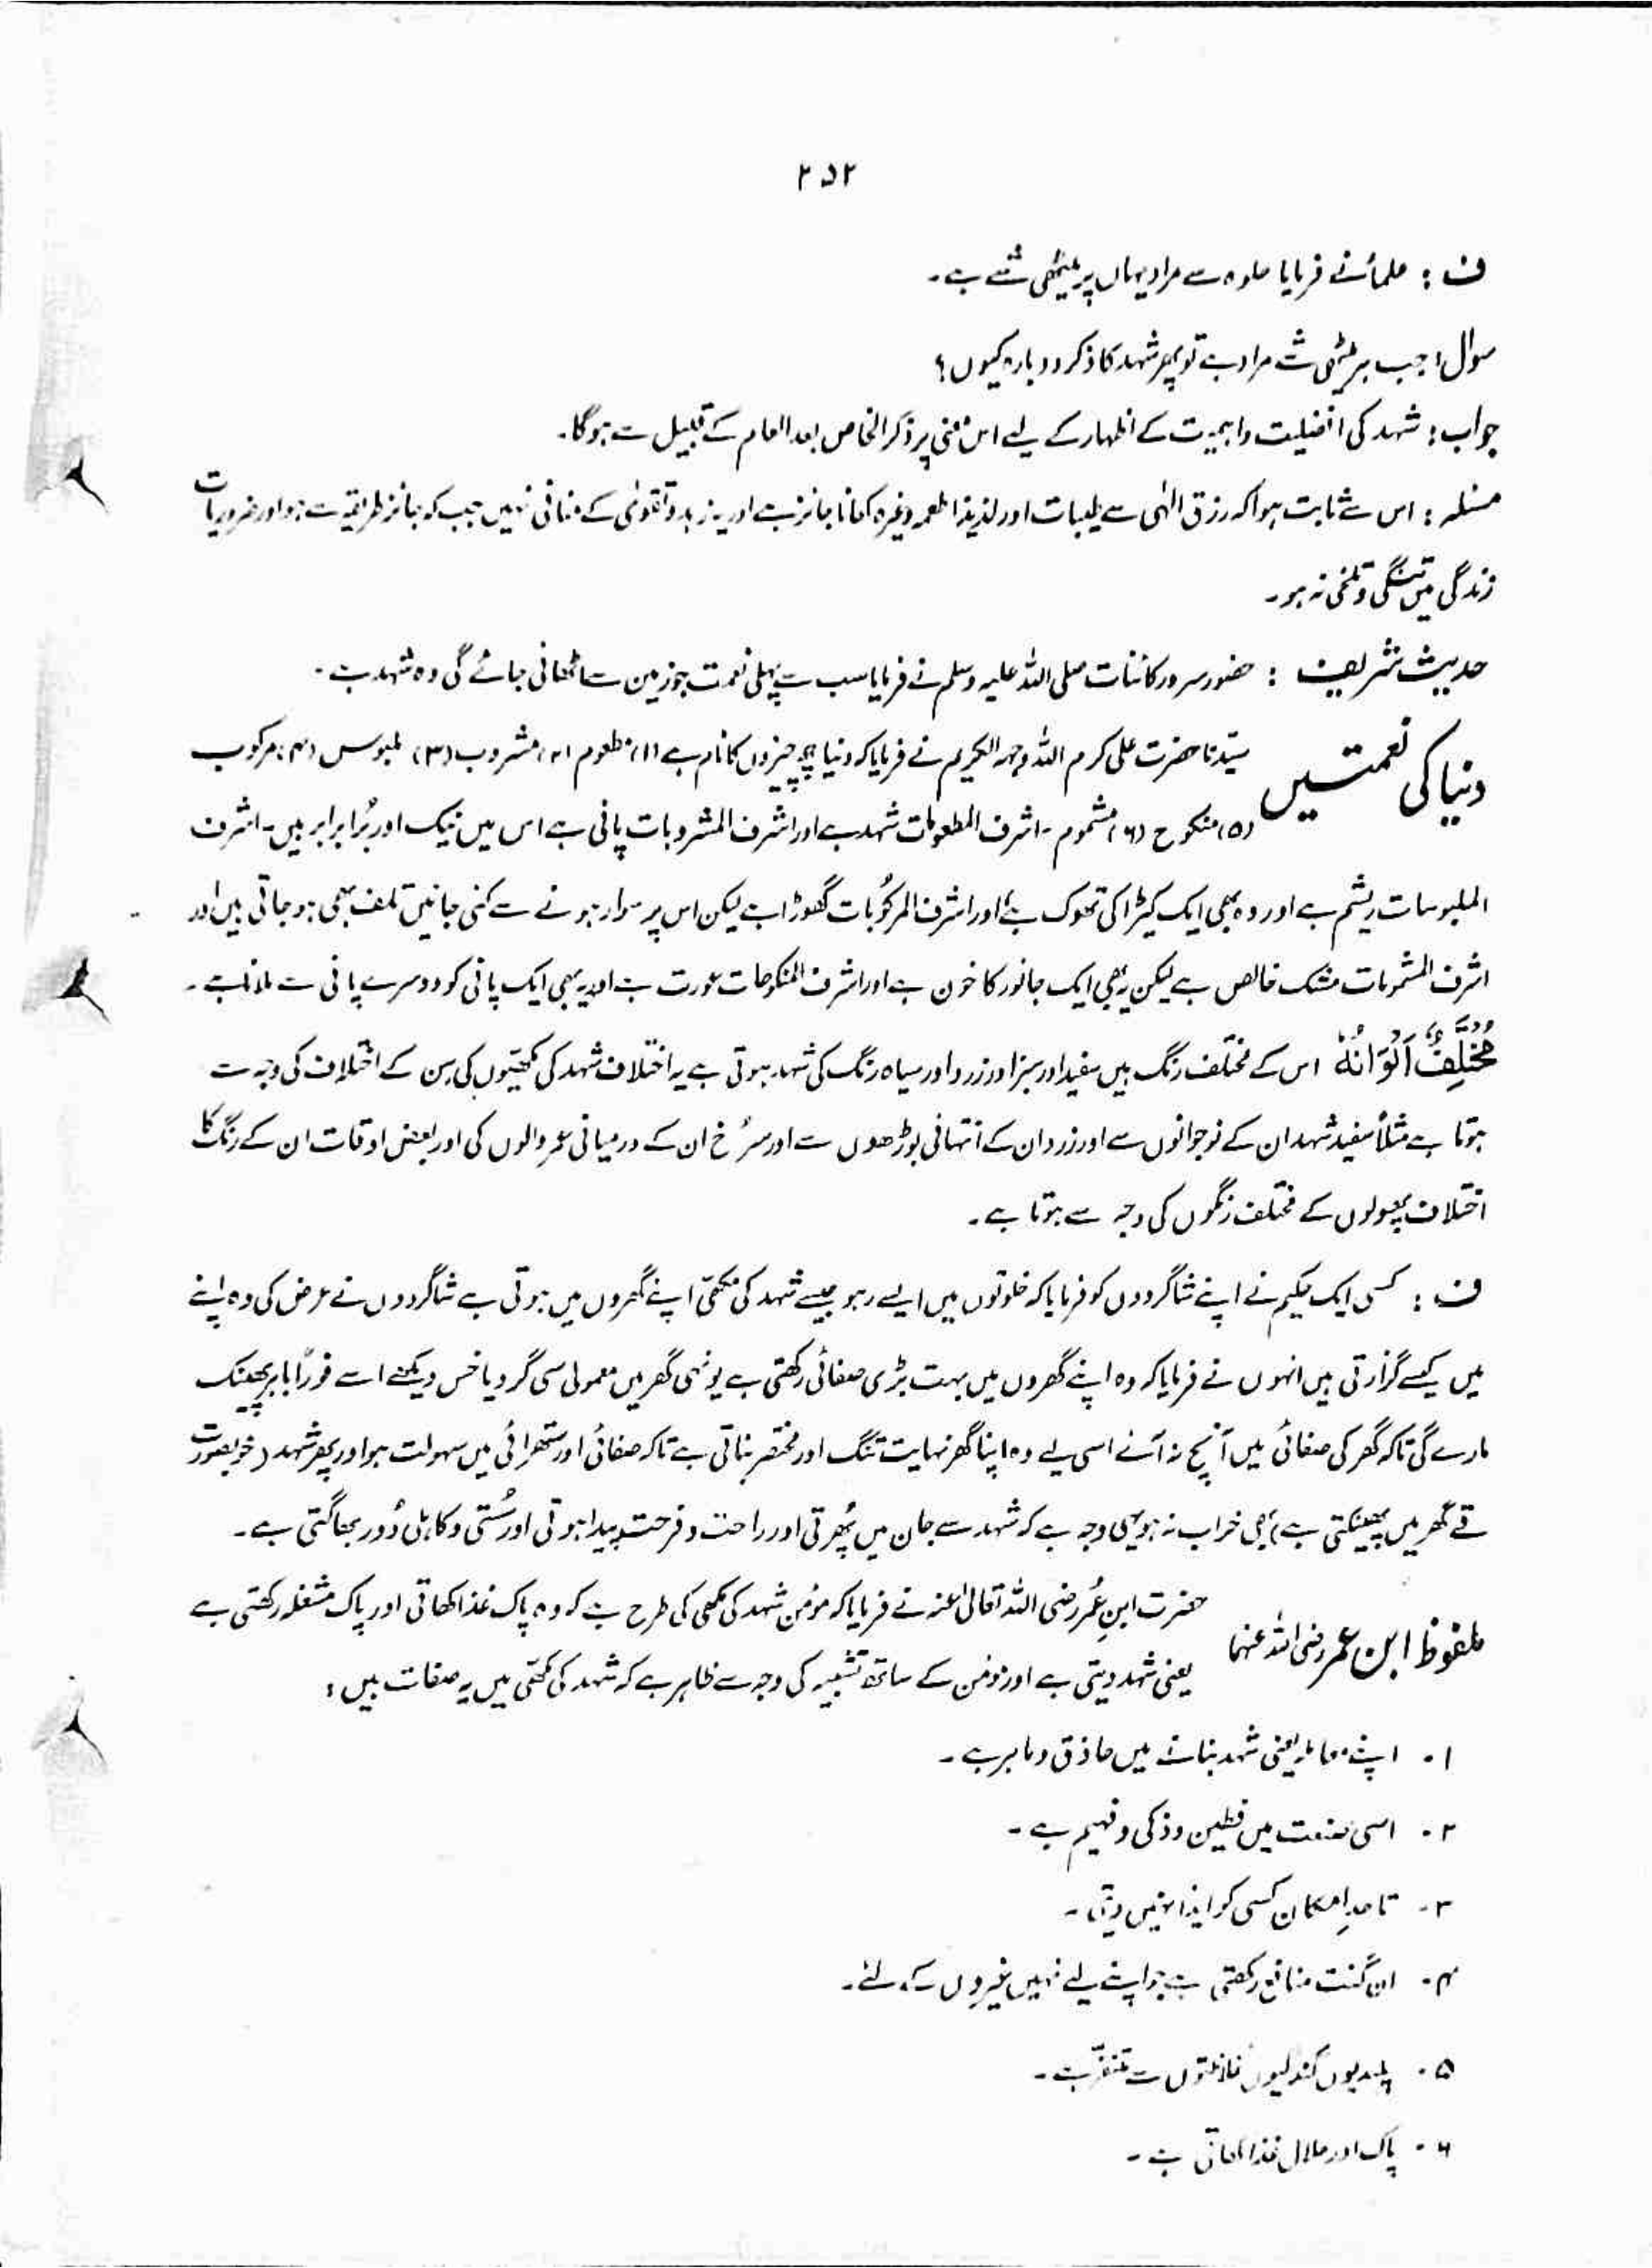 ۲۵۲
ف : علمأنے فرمایا حلوہ سے مراد یہاں پر میٹھی شے ہے۔
سوال : جب ہر میٹھی شے مراد ہے تو پھر شہد کا ذکر دوبارہ کیوں ؟
جواب : شہد کی افضلیت و اہمیت کے اظہار کے لیے اس معنی پر ذکر الخاص بعد العام کے قبیل سے ہوگا۔
مسئلہ : اس سے ثابت ہوا کہ رزق الٰہی سے طیبات اور لذیذ اطعمہ وغیرہ کھانا جائز ہے اور یہ زہد و تقویٰ کے منافی نہیں جب کہ جائز طریقہ سے ہو اور ضروریات
زندگی میں تنگی و تلخی نہ ہو۔
حدیث شریف : حضور سرور کائنات صلی اللہ علیہ وسلم نے فرمایا سب سے پہلی نعمت جو زمین سے اٹھائی جائے گی وہ شہد ہے۔
دنیا کی نعمتیں سیّدنا حضرت علی کرم اللہ وجہہ الکریم نے فرمایا کہ دنیا چھ چیزوں کا نام ہے (۱) مطعوم (۲) مشروب (۳) ملبوس (۴) مرکوب
(۵) منکوح (۶) مشموم ۔ اشرف المطعومات شہد ہے اور اشرف المشروبات پانی ہے اس میں نیک اور بُرا برابر ہیں۔ اشرف
الملبوسات ریشم ہے اور وہ بھی ایک کیڑا کی تھوک ہے اور اشرف المرکُوبات گھوڑا ہے لیکن اس پر سوار ہونے سے کئی جانیں تلف بھی ہو جاتی ہیں اور
اشرف المشمومات مشک خالص ہے لیکن یہ بھی ایک جانور کا خون ہے اور اشرف المنکوحات عورت ہے اور یہ بھی ایک پانی کو دوسرے پانی سے ملانا ہے۔
مُّخْتَلِفٌ اَلْوَانُهٗ اس کے مختلف رنگ ہیں سفید اور سبز اور زرد اور سیاہ رنگ کی شہد ہوتی ہے یہ اختلاف شہد کی مکھیّوں کی سِن کے اختلاف کی وجہ سے
ہوتا ہے مثلاً سفید شہد ان کے نوجوانوں سے اور زرد ان کے انتہائی بوڑھوں سے اور سُرخ ان کے درمیانی عمر والوں کی اور بعض اوقات ان کے رنگ کا
اختلاف پھولوں کے مختلف رنگوں کی وجہ سے ہوتا ہے۔
ف : کسی ایک حکیم نے اپنے شاگردوں کو فرمایا کہ خلوتوں میں ایسے رہو جیسے شہد کی مکھیّ اپنے گھروں میں ہوتی ہے شاگردوں نے عرض کی وہ اپنے
میں کیسے گزارتی ہیں انہوں نے فرمایا کہ وہ اپنے گھروں میں بہت بڑی صفائی رکھتی ہے یونہی گھر میں معمولی سی گرد یا خس دیکھے اسے فوراً باہر پھینک
مارے گی تاکہ گھر کی صفائی میں آنچ نہ آئے اسی لیے وہ اپنا گھر نہایت تنگ اور مختصر بناتی ہے تاکہ صفائی اور ستھرائی میں سہولت ہو اور پھر شہد (خوبصورت
قے گھر میں پھینکتی ہے) بھی خراب نہ ہو یہی وجہ ہے کہ شہد سے جان میں پُھرتی اور راحت و فرحت پیدا ہوتی اور سُستی و کاہلی دُور بھاگتی ہے۔
ملفوظ ابن عمر رضی اللہ عنہما حضرت ابنِ عُمر رضی اللہ تعالیٰ عنہ نے فرمایا کہ مؤمن شہد کی مکھی کی طرح ہے کہ وہ پاک غذا کھاتی اور پاک مشغلہ رکھتی ہے
یعنی شہد دیتی ہے اور مؤمن کے ساتھ تشبیہ کی وجہ سے ظاہر ہے کہ شہد کی مکھّی میں یہ صفات ہیں :
۱۔ اپنے معاملہ یعنی شہد بنانے میں حاذق و ماہر ہے۔
۲۔ اسی صنعت میں فطین و ذکی و فہیم ہے۔
۳۔ تا حدِ امکان کسی کو ایذا نہیں دیتی۔
۴۔ ان گنت منافع رکھتی ہے جو اپنے لیے نہیں غیروں کے لئے۔
۵۔ پلیدیوں گندگیوں غلاظتوں سے متنفرّ ہے۔
۶۔ پاک اور حلال غذا کھاتی ہے۔